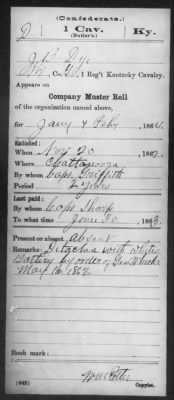 (Confederate.)
D 1 Cav. Ky.
(Butler's)
Dye
Co. D, 1 Reg't Kentucky Cavalry.
Appears on
Company Muster Roll
of the organization named above,
for Jany & Feby, 1864.
Enlisted:
When Nov 20, 1862.
Where Chattanooga
By whom Capt Griffith
Period 2 years
Last paid:
By whom Capt Sharp
To what time June 30, 1863.
Present or absent Absent
Remarks: Detached with White
Battery by order of Gen
May 16, 1863.
Book mark:
(642) Copyist.